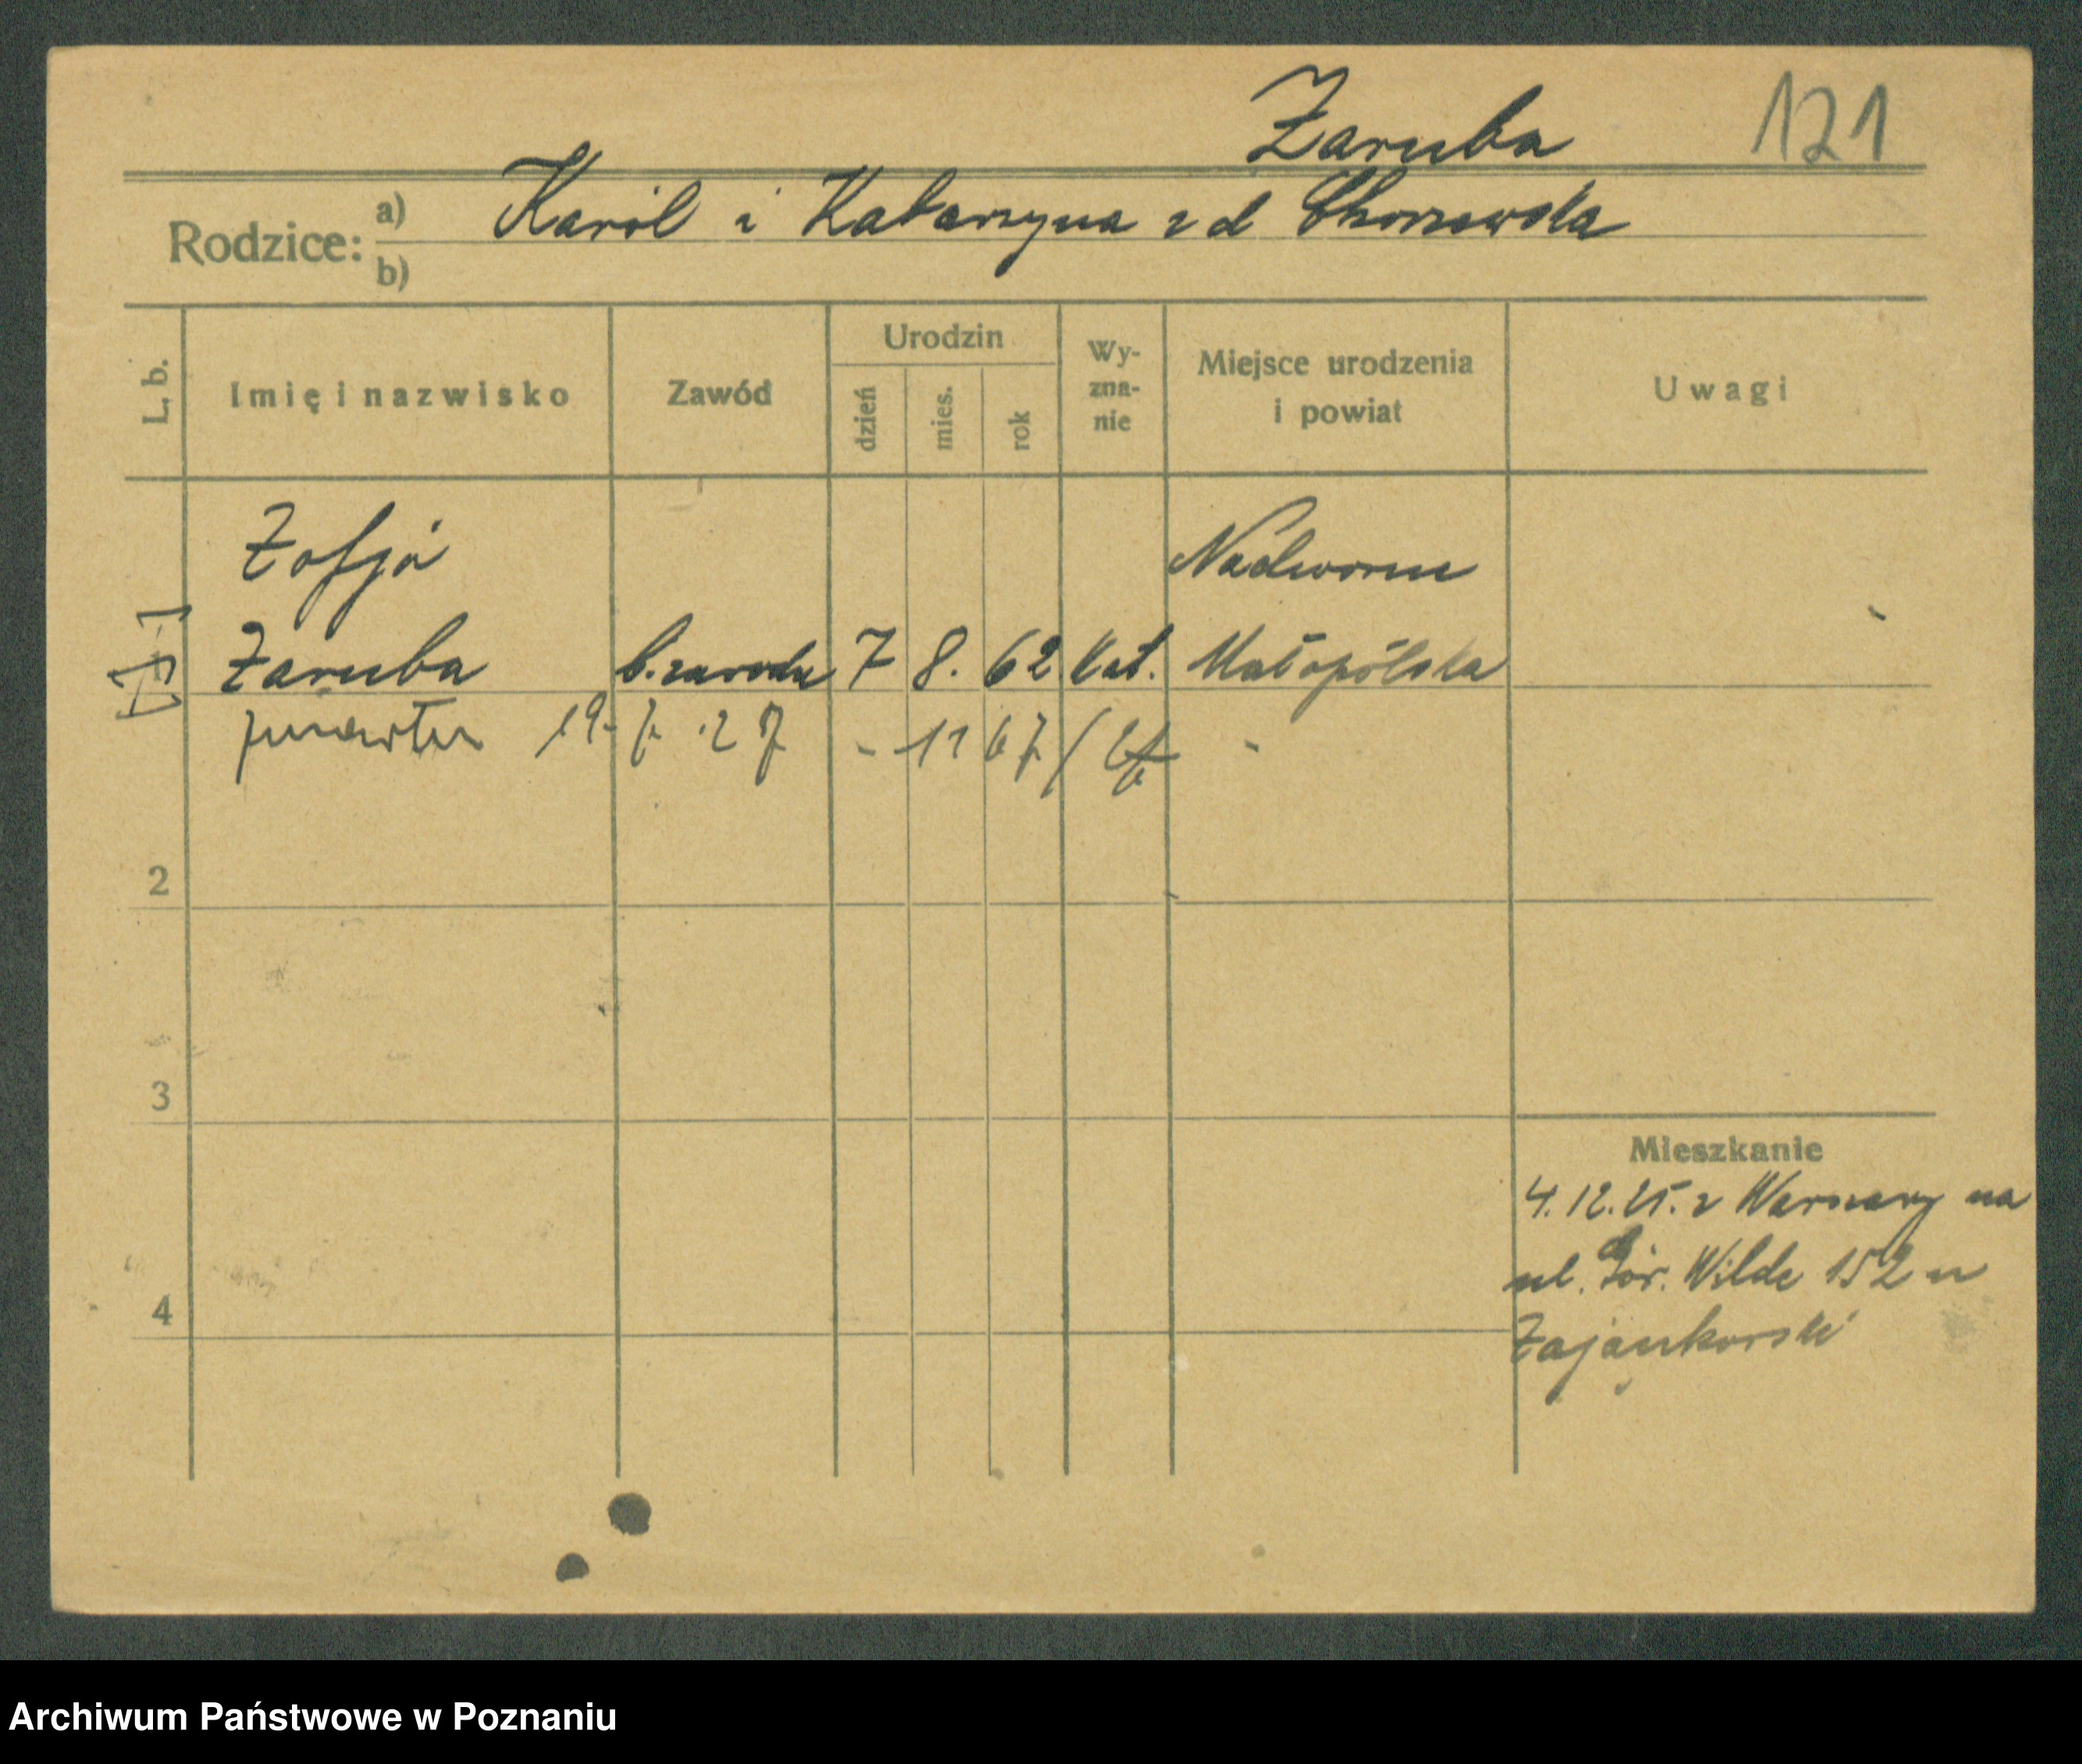 Zaruba 121
Rodzice: a) Karol i Katarzyna z d Chorzewska
b)
L. b. Imię i nazwisko Zawód Urodzin dzień mies. rok Wy-zna-nie Miejsce urodzenia i powiat Uwagi
Zofja Nadworne
Zaruba b. zawodu 7 8. 62 kat. Małopolska
zmarła 19. 7. 27 - 11 67/27
2
3
Mieszkanie
4. 12. 25. z Warszawy na
ul. Gór. Wilde 152 u
4
Zająnkowski
Archiwum Państwowe w Poznaniu